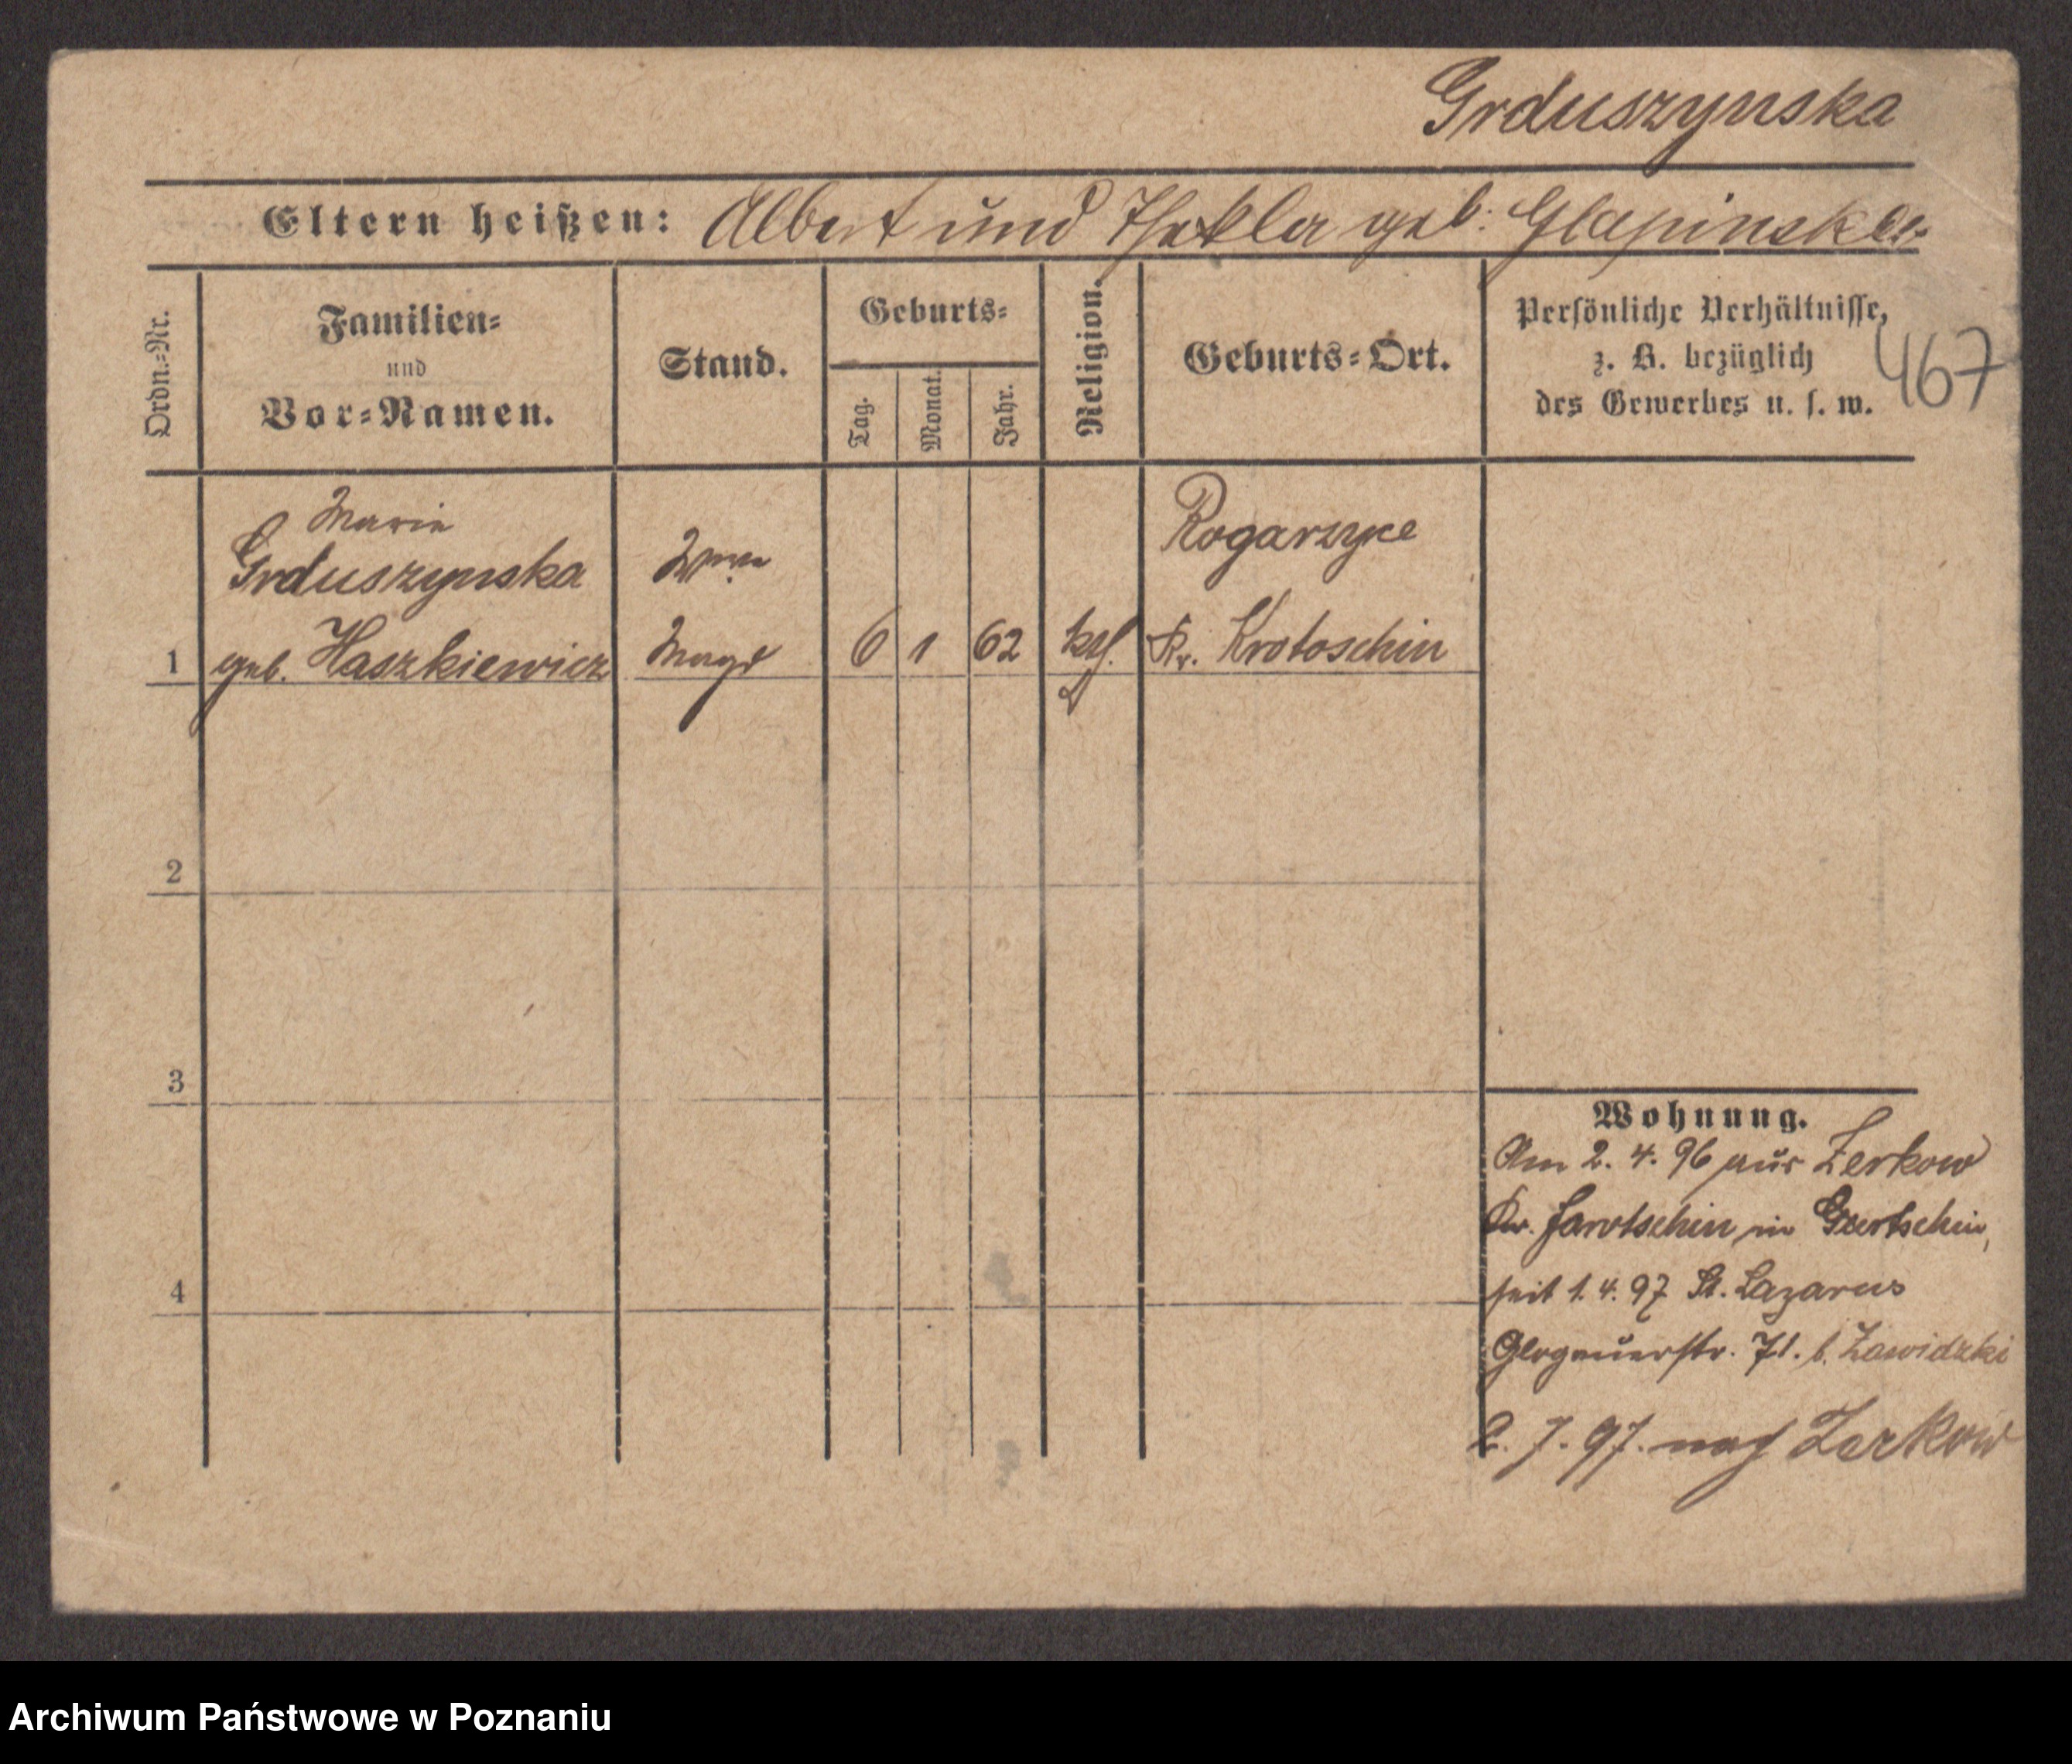 Grduszynska
Eltern heißen: Albert und Thekla geb. Glapinska.
Ordn.=Nr.
Familien=
und
Vor=Namen.
Stand.
Geburts=
Tag.
Monat.
Jahr.
Religion.
Geburts=Ort.
Persönliche Verhältnisse,
z. B. bezüglich
des Gewerbes u. s. w.
467
Marie
Grduszynska
geb. Haszkiewicz
1
Magd
6
1
62
kth.
Rogarzyce
Kr. Krotoschin
2
3
4
Wohnung.
Am 2. 4. 96 aus Zerkow
Kr. Jarotschin in Gurtschin,
seit 1. 4. 97 St. Lazarus
Glogauerstr. 71. b. Zawidzki
2. 7. 97. nach Zerkow
Archiwum Państwowe w Poznaniu